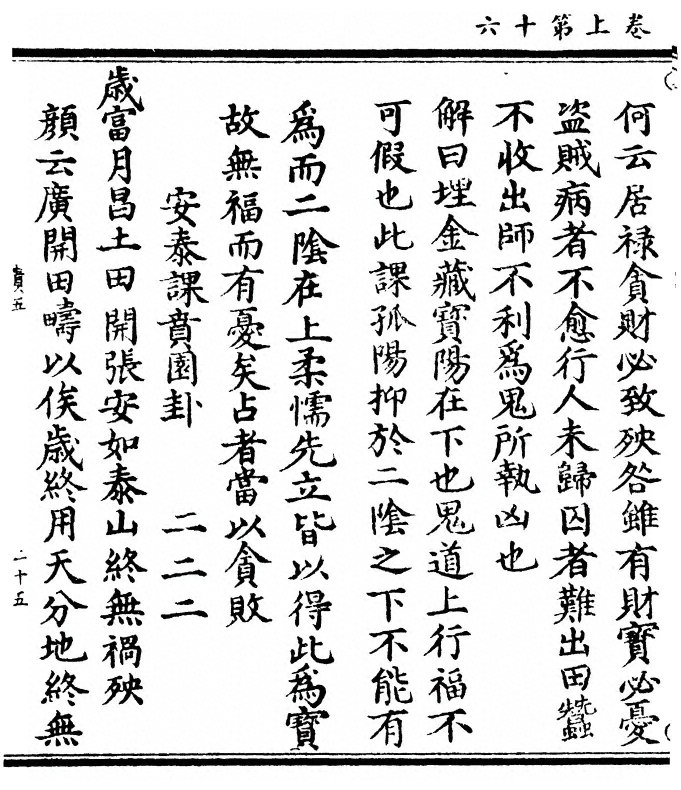 卷上第十六
何云居禄貪財必致殃咎雖有財寳必憂
盜賊病者不愈行人未歸囚者難出田蠶
不收出師不利為鬼所執凶也
解曰埋金藏寳陽在下也鬼道上行福不
可假也此課孤陽抑於二隂之下不能有
為而二隂在上柔懦先立皆以得此為寳
故無福而有憂矣占者當以貪敗
安泰課賁園卦 二二二
歲富月昌土田開張安如泰山終無禍殃
顔云廣開田疇以俟歲終用天分地終無
賁五
二十五